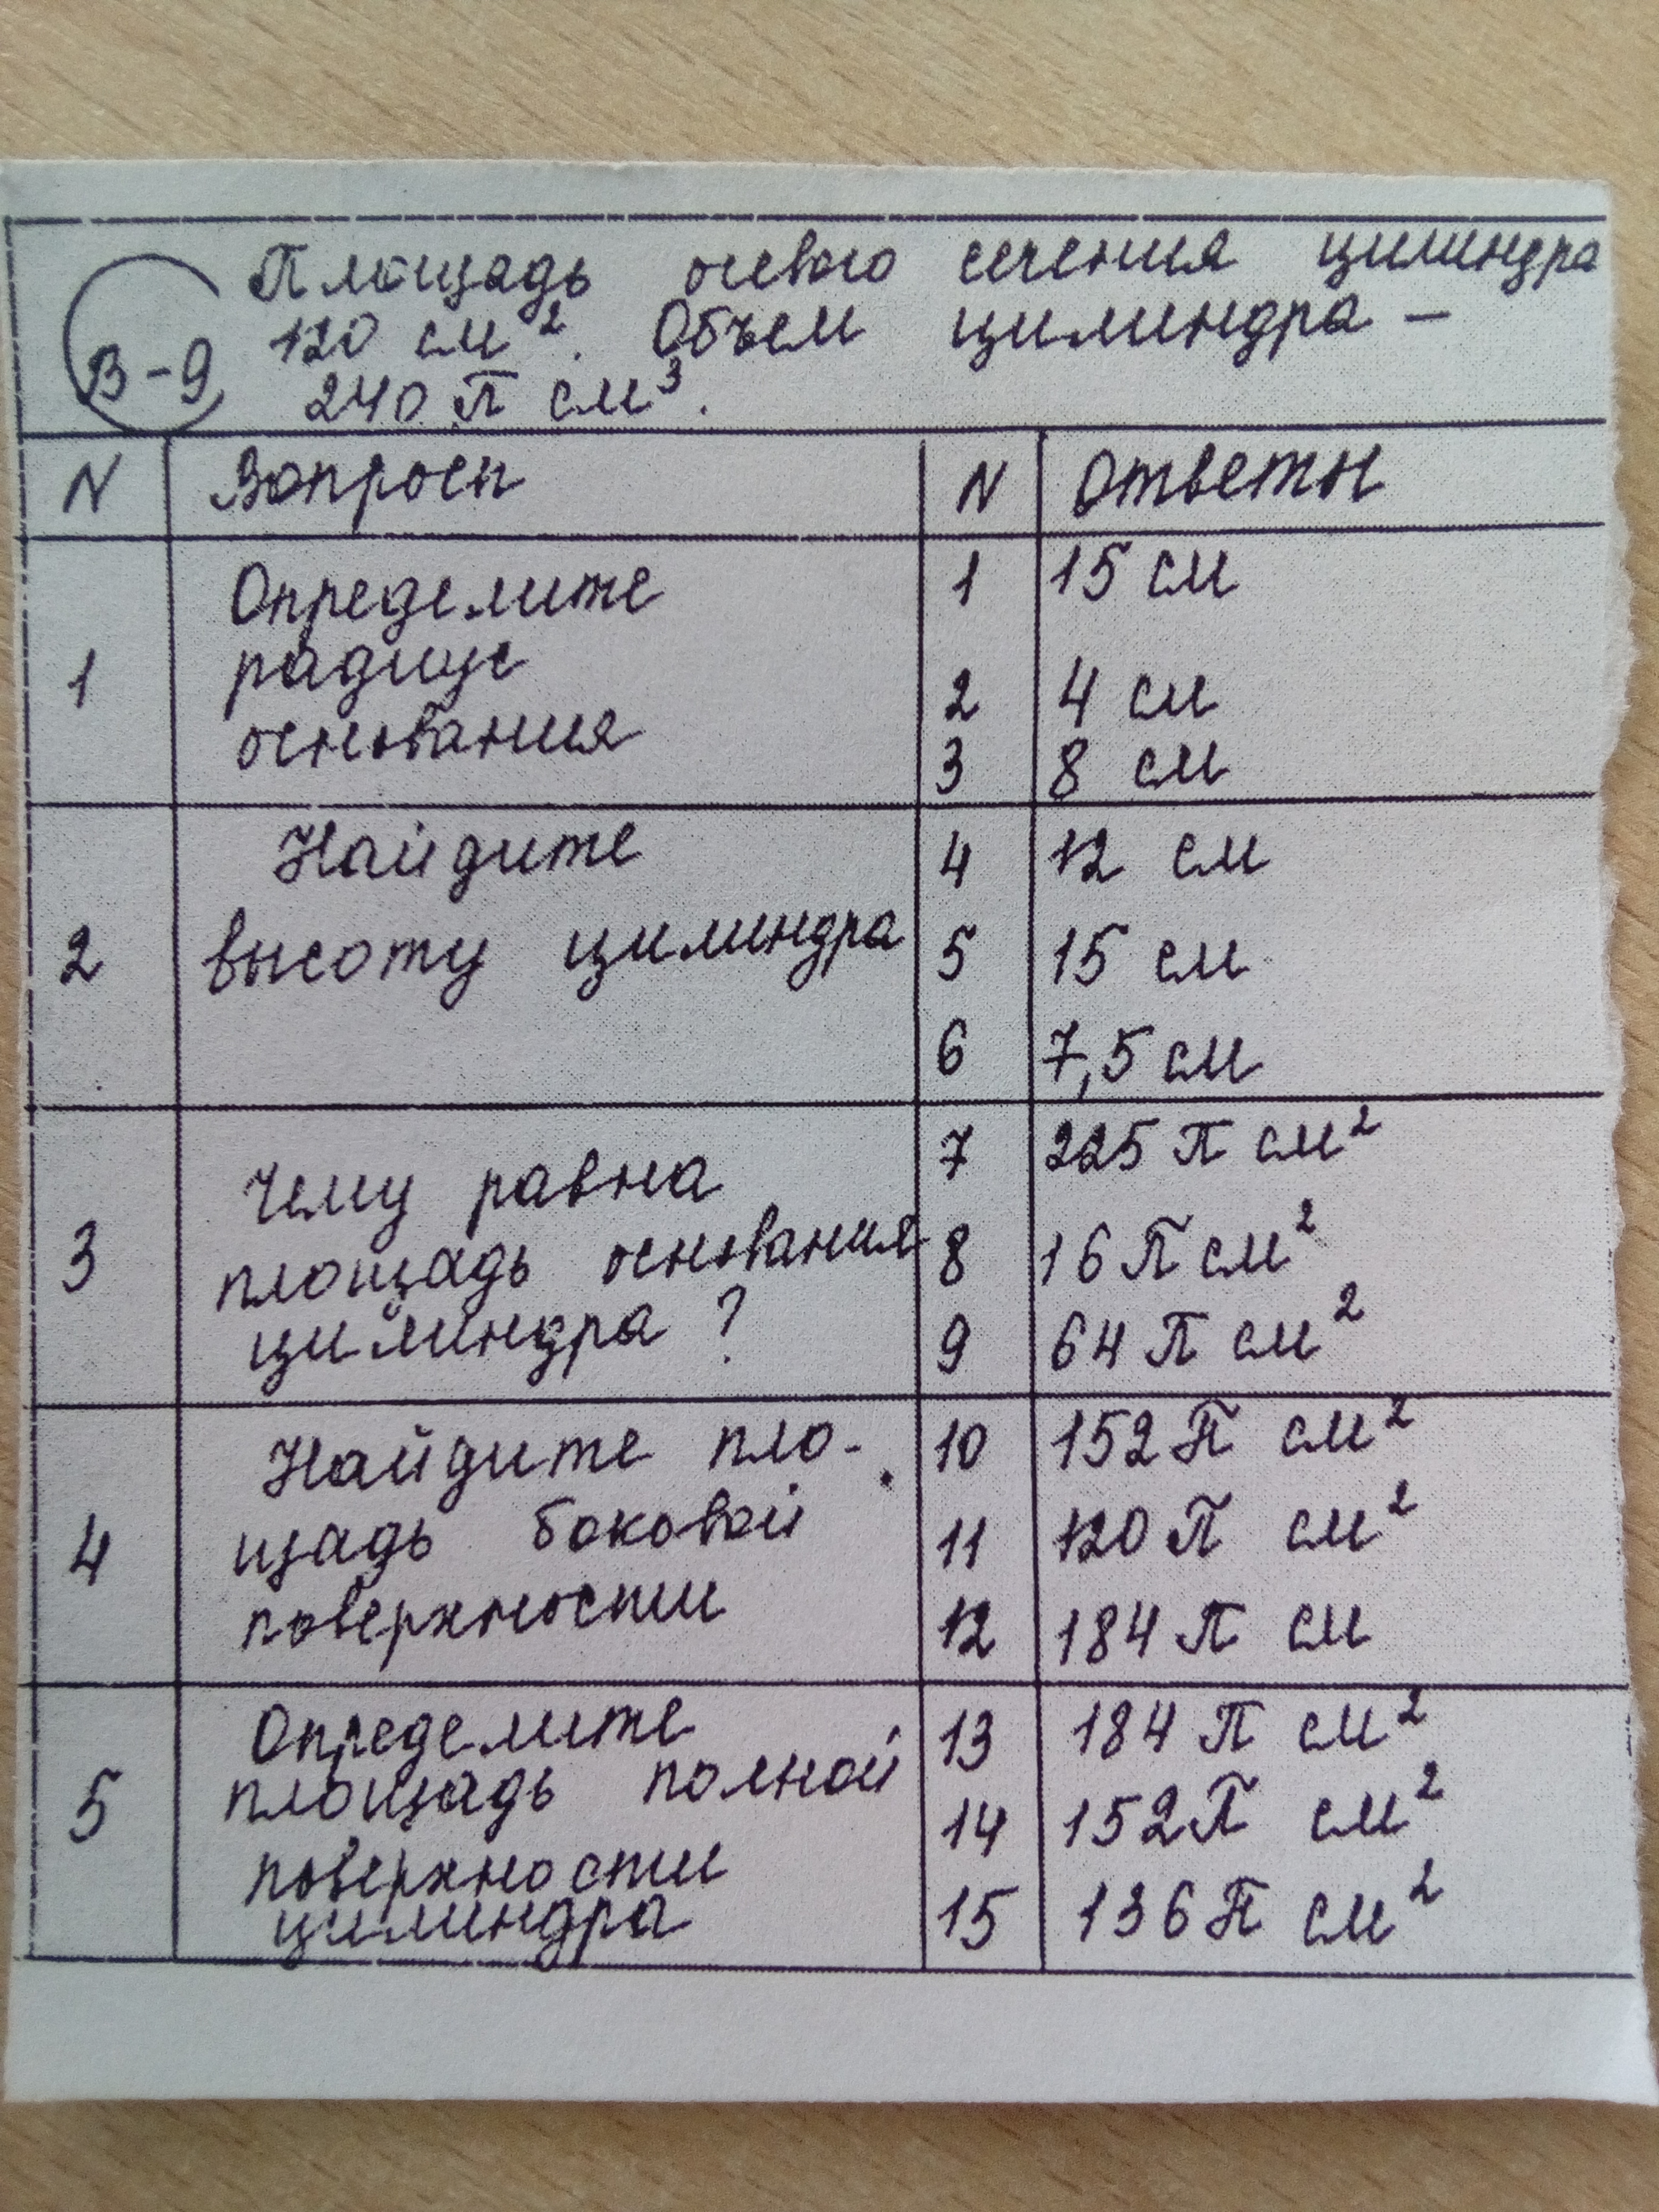 Площадь осевого сечения цилиндра
В-9 120 см². Объем цилиндра –
240 π см³.
N Вопросы N Ответы
1 Определите радиус основания
1 15 см
2 4 см
3 8 см
2 Найдите
высоту цилиндра
4 12 см
5 15 см
6 7,5 см
3 Чему равна
площадь основания
цилиндра ?
7 225 π см²
8 16 π см²
9 64 π см²
4 Найдите пло-
щадь боковой
поверхности
10 152 π см²
11 120 π см²
12 184 π см
5 Определите
площадь полной
поверхности
цилиндра
13 184 π см²
14 152 π см²
15 136 π см²